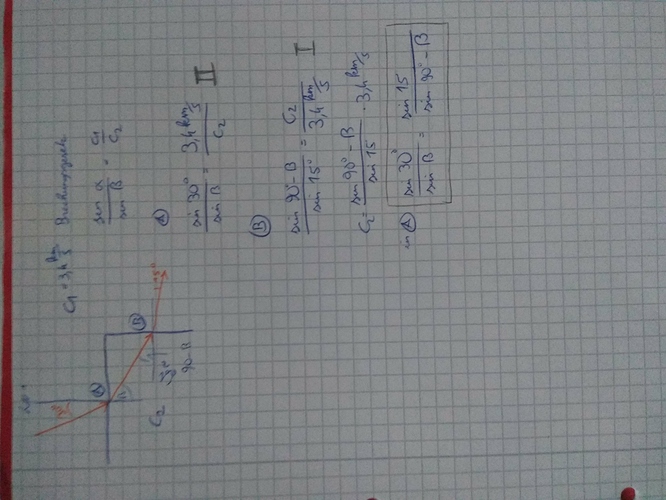 C₁ = 3,4 km/s Brechungsgesetz
sin α / sin β = C₁ / C₂
Ⓐ
sin 30° / sin β = 3,4 km/s / C₂ II
Ⓑ
sin 90° - β / sin 15° = C₂ / 3,4 km/s I
C₂ = sin 90° - β / sin 15 · 3,4 km/s
in Ⓐ sin 30° / sin β = sin 15 / sin 90° - β
A
B
C₂
90-β
15°